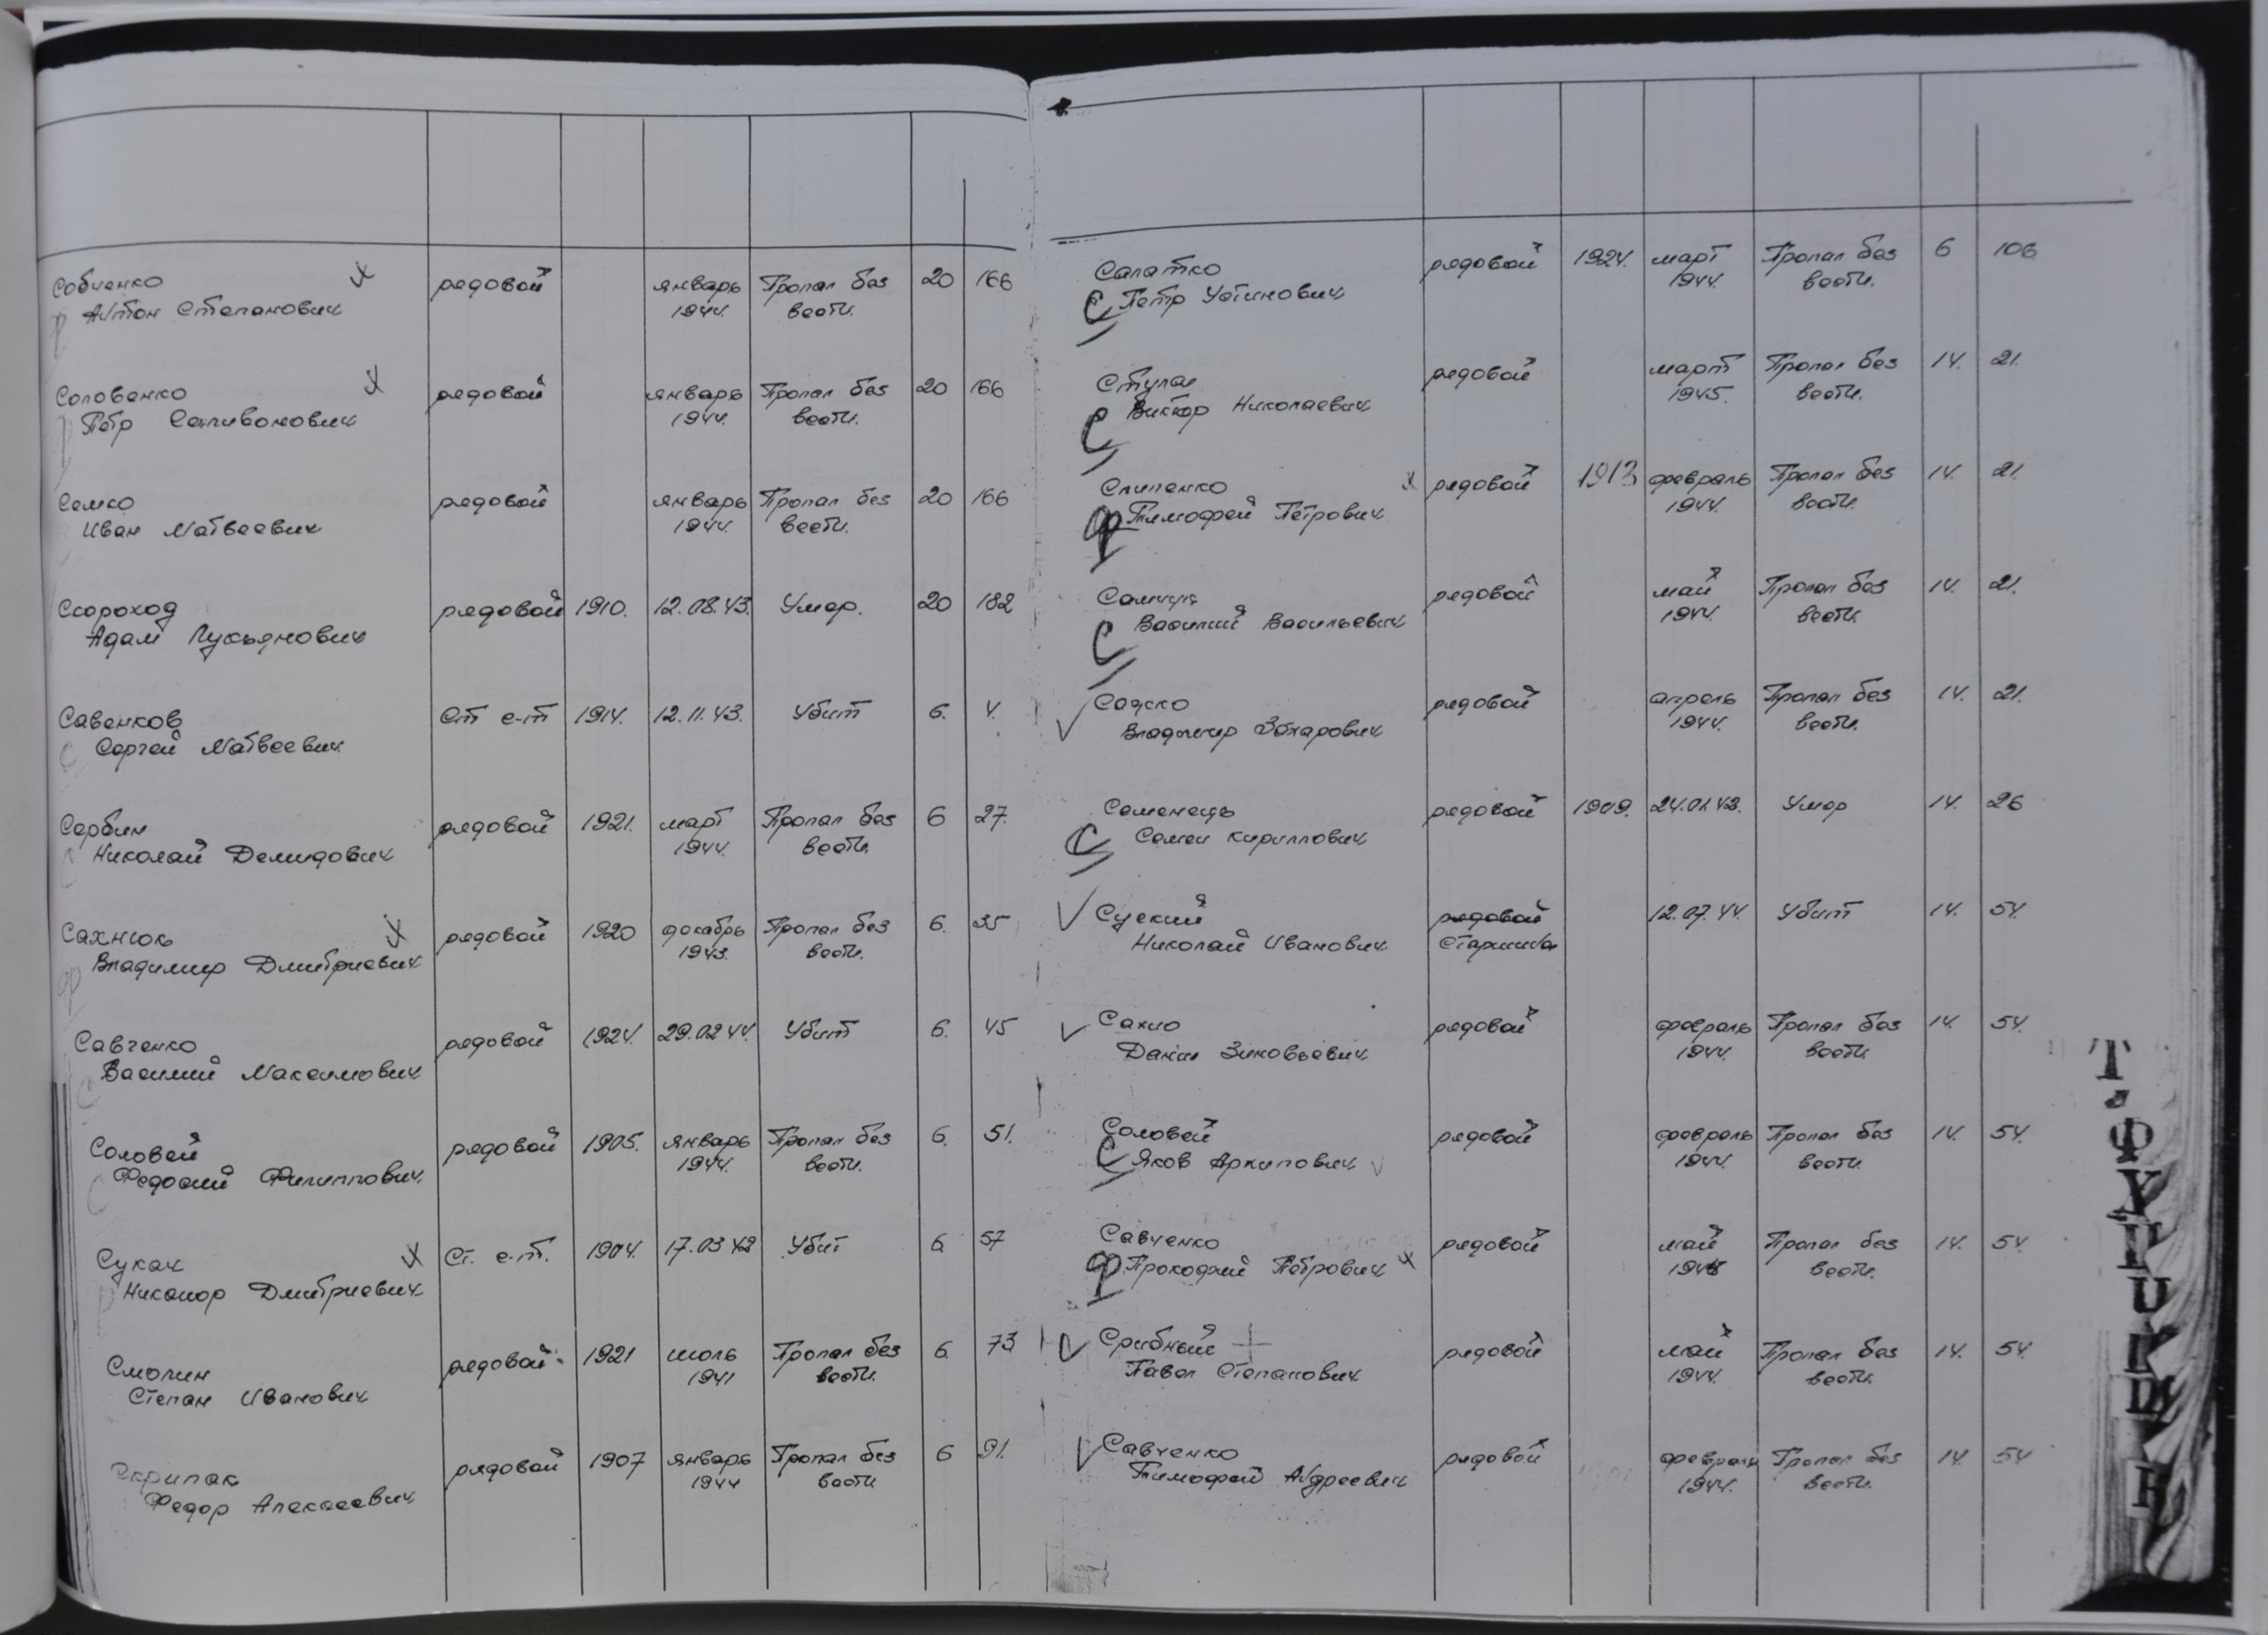 Собченко х рядовой январь Пропал без 20 166
Антон Степанович 1944. вести.
Соловенко х рядовой январь Пропал без 20 166
Пётр Селивонович 1944. вести.
Семко рядовой январь Пропал без 20 166
Иван Матвеевич 1944. вести.
Скороход рядовой 1910. 12.08.43. Умер. 20 182
Адам Лукьянович
Савенков Ст с-т 1914. 12.11.43. Убит 6. 4.
с Сергей Матвеевич
Сербин рядовой 1921. март Пропал без 6 27.
с Николай Демидович 1944. вести.
Сахнюк х рядовой 1920 декабрь Пропал без 6. 35
ф Владимир Дмитриевич 1943. вести.
Савченко рядовой 1924. 29.02.44. Убит 6. 45
с Василий Максимович
Соловей рядовой 1905. январь Пропал без 6. 51.
с Федосий Филиппович. 1944. вести.
Сукач х Ст. с-т. 1904. 17.03.42 Убит 6 57
Никанор Дмитриевич
Смолин рядовой 1921 июль Пропал без 6. 73
Степан Иванович 1941 вести.
Скрипак рядовой 1907 январь Пропал без 6 91.
Федор Алексеевич 1944 вести
Салатко рядовой 1924. март Пропал без 6 106
С Петр Устинович 1944. вести.
рядовой март Пропал без 14. 21.
С Виктор Николаевич 1945. вести.
Слипенко х рядовой 1913 февраль Пропал без 14. 21.
Ф Тимофей Петрович 1944. вести.
рядовой май Пропал без 14. 21.
С Василий Васильевич 1944. вести.
Садко рядовой апрель Пропал без 14. 21.
Владимир Захарович 1944. вести.
Семенець рядовой 1909. 24.01.43. Умер 14. 26
С Семен Кириллович
Суский рядовой 12.07.44. Убит 14. 54.
Николай Иванович старшина
Сахно рядовой февраль Пропал без 14. 54.
Данил Зиновьевич 1944. вести
Соловей рядовой февраль Пропал без 14. 54.
С Яков Архипович 1944. вести
Савченко рядовой май Пропал без 14. 54
Ф Прокофий Петрович х вести.
Срибный рядовой май Пропал без 14. 54.
Павел Степанович 1944. вести.
Савченко рядовой февраль Пропал без 14 54
Тимофей Андреевич 1944. вести.